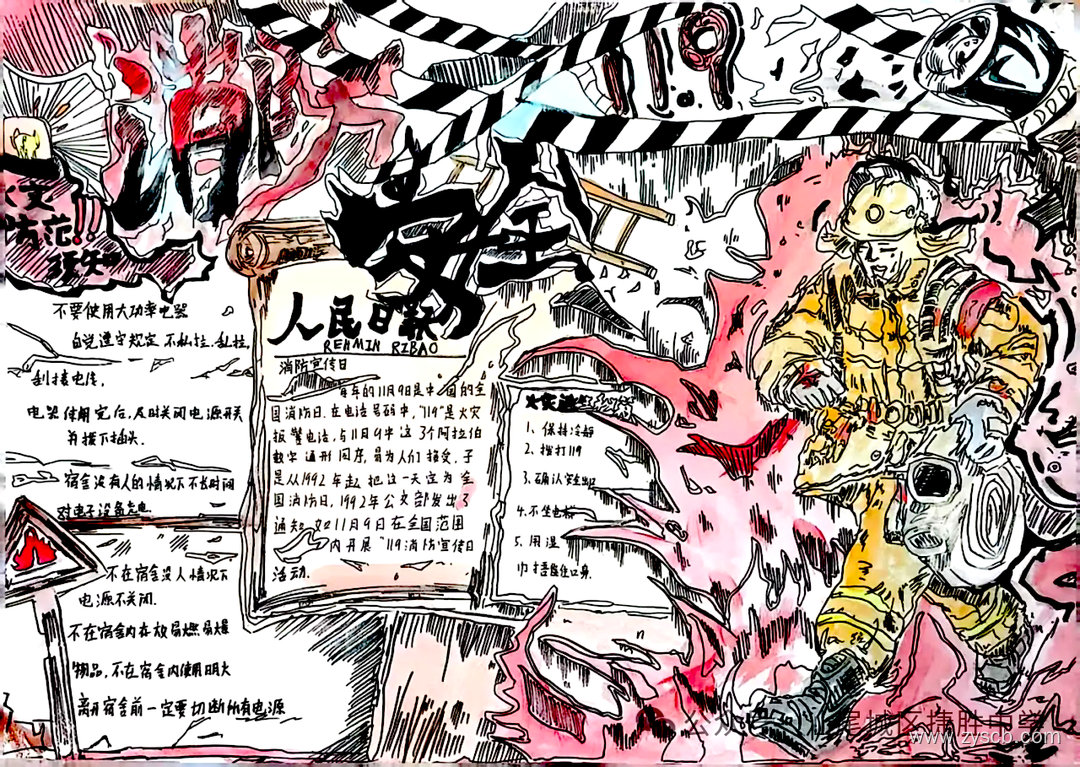 消防
安全
119
火灾
防范!!
须知
不要使用大功率电器
自觉遵守规定,不私拉.乱拉,
乱接电线.
电器使用完后,及时关闭电源开关
并拔下插头.
宿舍没有人的情况下不长时间
对电子设备充电
不在宿舍没人情况下
电源不关闭.
不在宿舍内存放易燃易爆
物品,不在宿舍内使用明火
离开宿舍前一定要切断所有电源
人民日报
REHMIH RIBAO
消防宣传日
每年的11月9日是中国的全
国消防日.在电话号码中,"119"是火灾
报警电话,与11月9日这3个阿拉伯
数字
同序,
为人们接受.于
是从1992年起,把这一天定为全
国消防日.1992年公安部发出了
通知,
11月9日在全国范围
内开展"119消防宣传日
活动.
火灾逃生
1、保持冷静
2、拨打119
3、确认安全出口
4、不坐电梯
5、用湿
巾捂住口鼻.
www.zyscb.com